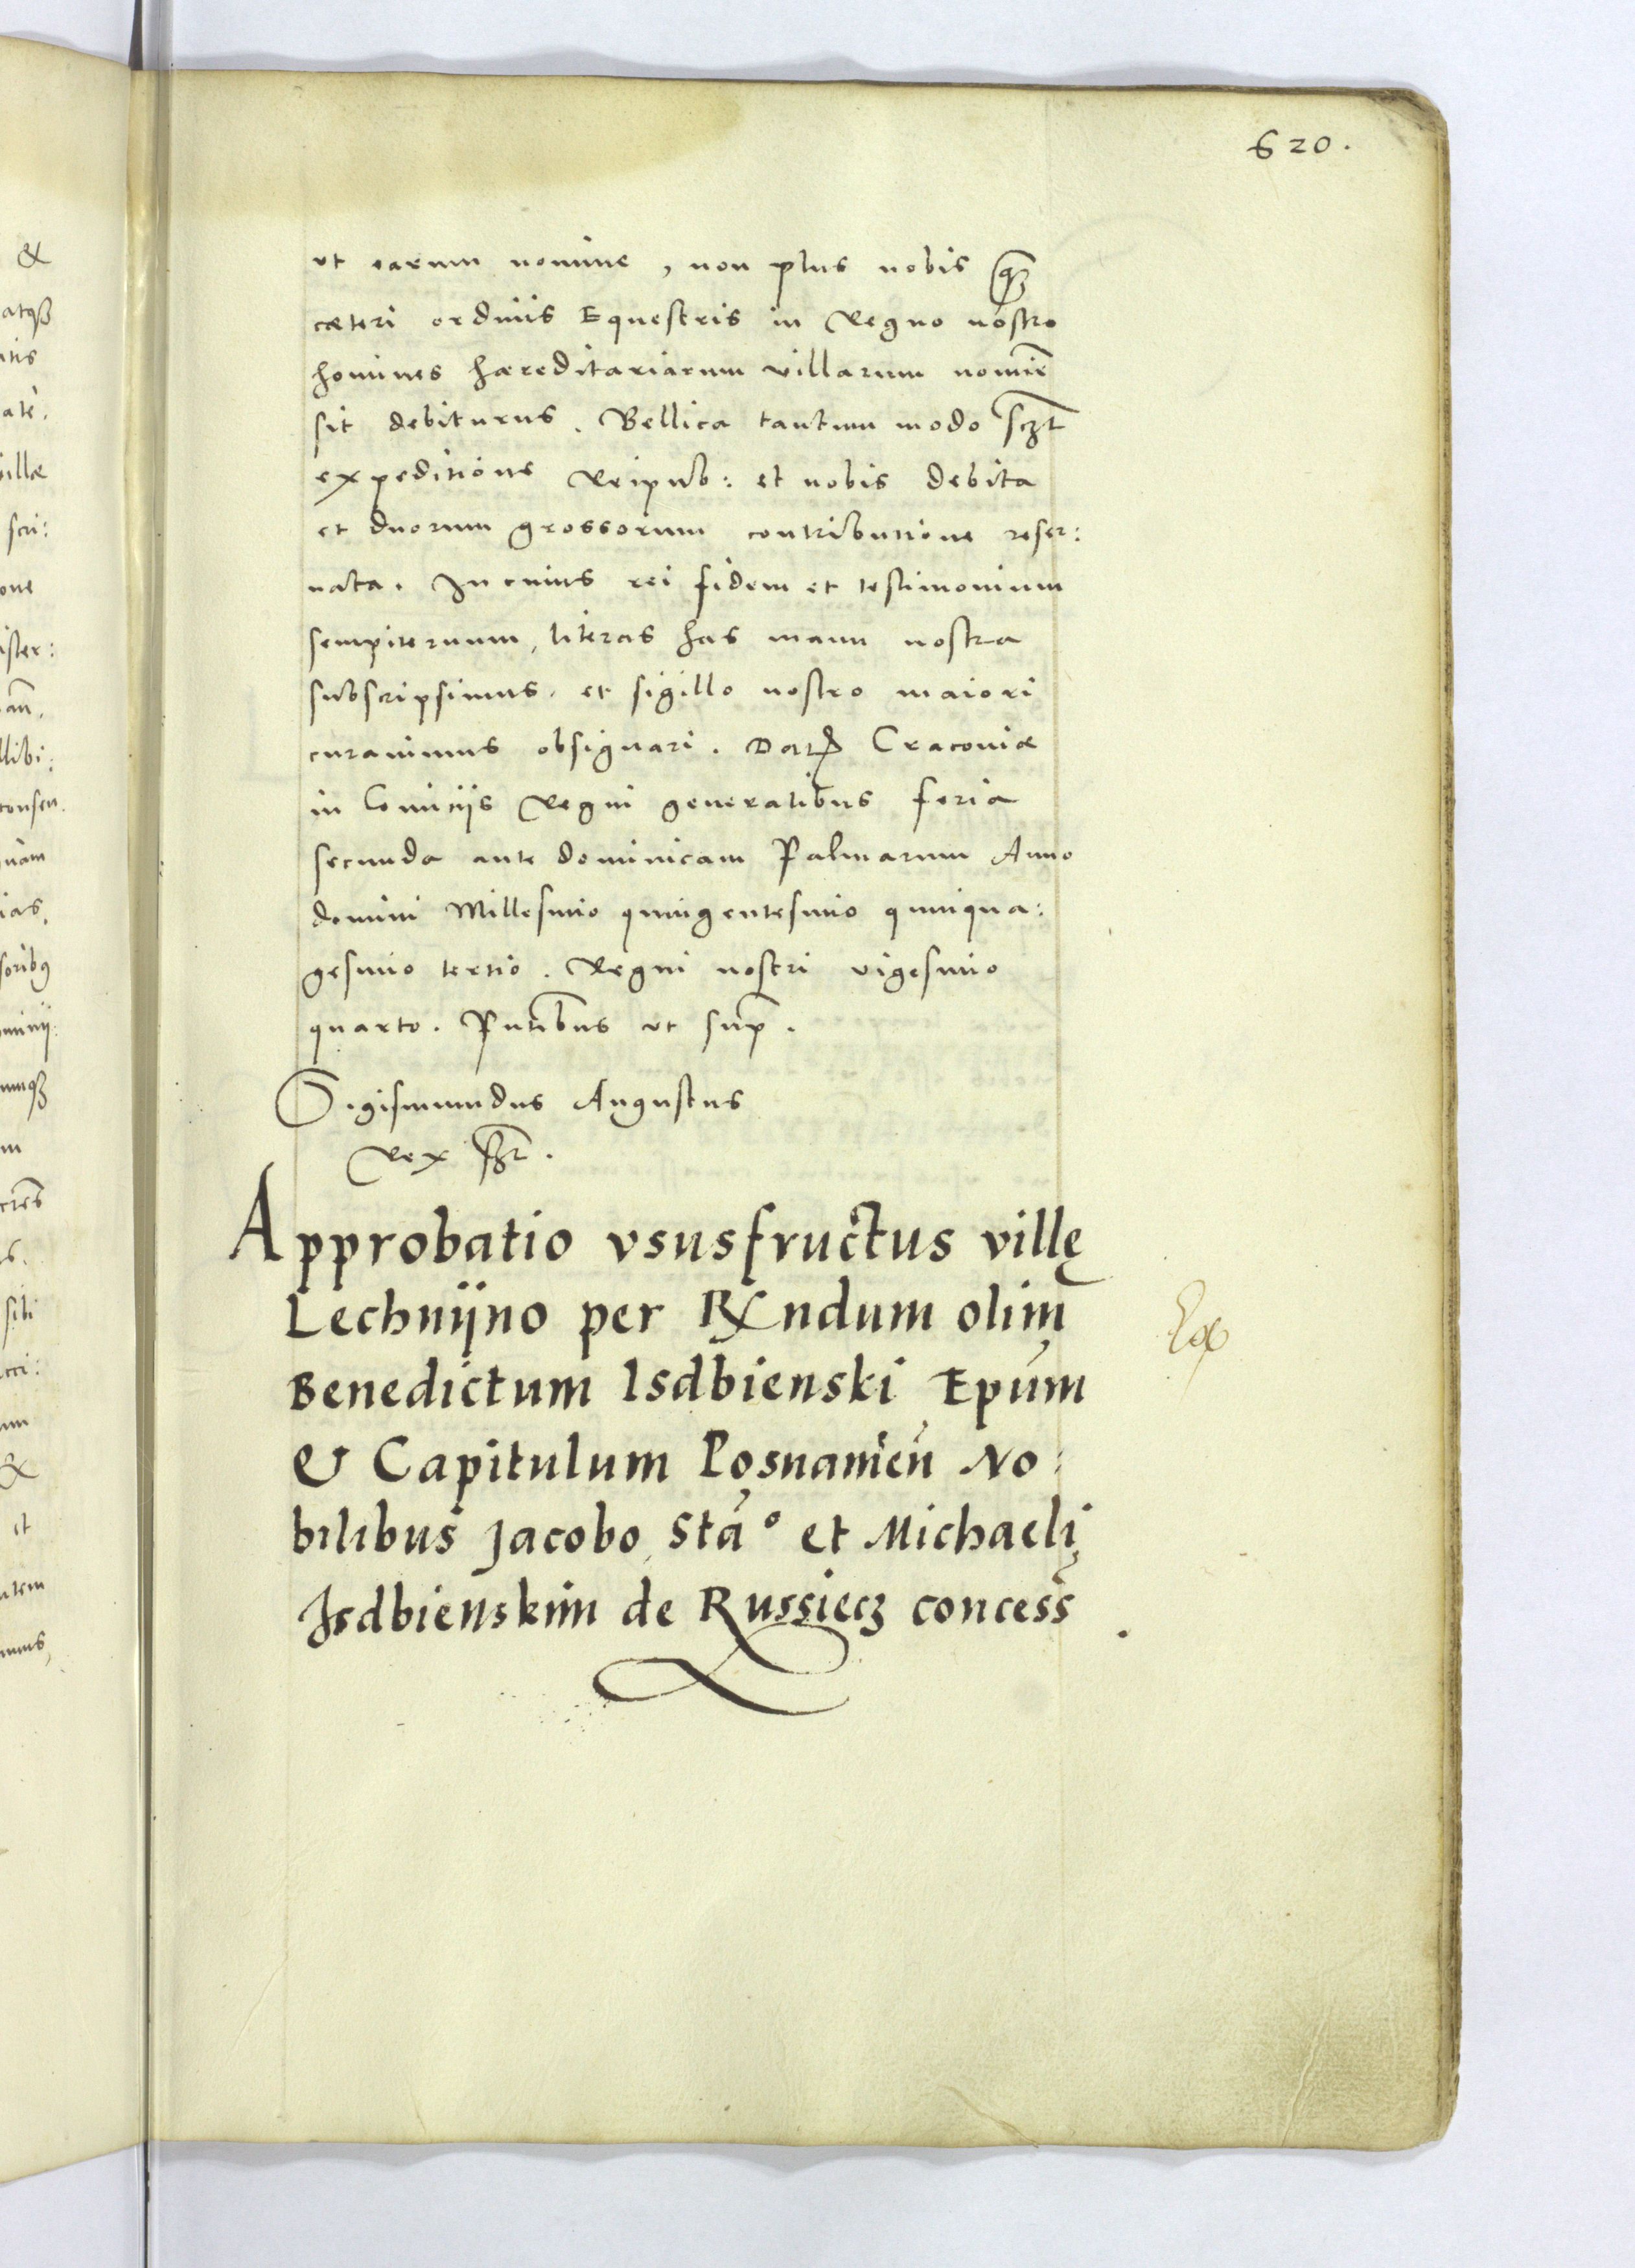 620.
ut earum nomine, non plus nobis q̃
cæteri ordinis Equestris in Regno nostro
homines hæreditariarum villarum nomīe
sit debiturus. Bellica tantum modo sczt
expeditione Reipub: et nobis debita
et duorum grossorum contributione reser:
uata. In cuius rei fidem et testimonium
sempiternum, literas has manu nostra
subscripsimus. et sigillo nostro maiori
curauimus obsignari. Dat Cracoviæ
in Comicijs Regni generalibus feria
secunda ante dominicam Palmarum Anno
domini Millesimo quingentesimo quinqua:
gesimo tertio. Regni nostri vigesimo
quarto. Pntibus ut sup.
Sigismundus Augustus
Rex sszt.
Approbatio vsusfructus villę
Lechnijno per Rndum olim
Benedictum Isdbienski Epum
& Capitulum Posnanien̄ No:
bilibus Jacobo, Sta° et Michaeli
Isdbienskim de Russiecz concess̄.
Ex